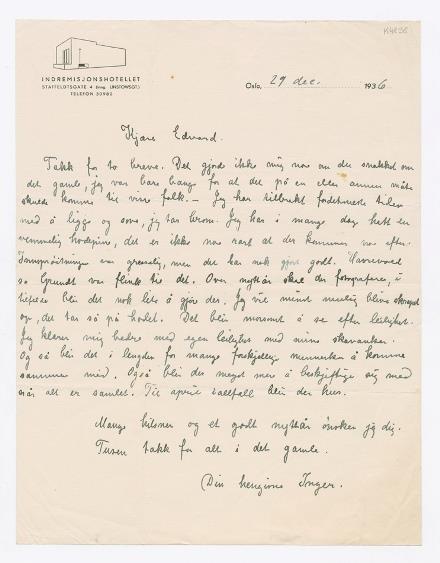 K4836
INDREMISJONSHOTELLET
STAFFELDTSGATE 4 (inng. LINSTOWSGT.)
TELEFON 30982
Oslo, 29 dec. 1936
Kjære Edvard.
Takk for to breve. Det gjorde ikke mig noe om du snakket om
det gamle, jeg var bare bange for at det på en eller annen måte
skulde komme til visse folk. – Jeg har tilbrakt tiden
med å ligge og sove, jeg tar brom. Jeg har i mange dage hatt en
vemmelig hodepine, det er ikke noe rart at der kommer noe efter.
var grusomlig, men det har nok gjort godt.
sa Grundt var flink til det. Over nyttår skal der fotograferes, i
blir det nok lett å gjøre der. Jeg vil minst mulig bli
op, det tar så på hodet. Det blir morsomt å se efter leilighet.
Jeg klarer mig bedre med egen leilighet med mine skavanker.
Og så blir det i lengden for mange forskjellige mennesker å komme
sammen med. Også blir der meget mere å beskjeftige sig med
når alt er samlet. Til april ialfall blir der her.
Mange hilsner og et godt nyttår ønsker jeg dig.
Tusen takk for alt i det gamle.
Din hengivne Inger.